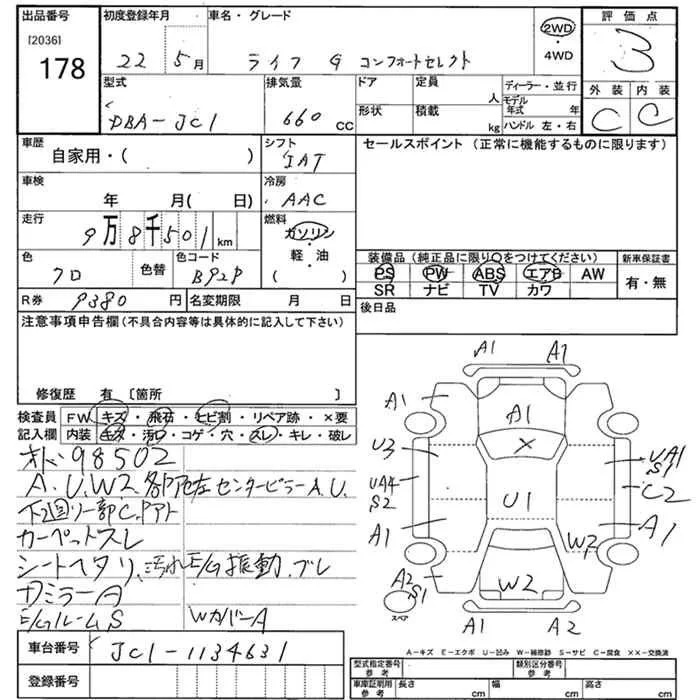 出品番号 初度登録年月 車名・グレード 評価点
[2036]
178 22 5月 ライフ G コンフォートセレクト 2WD・4WD 3
型式 排気量 ドア 定員 人 ディーラー・並行 外装 内装
DBA-JC1 660 CC 形状 積載 kg モデル年式 年 C C
ハンドル 左・右
車歴 シフト セールスポイント(正常に機能するものに限ります)
自家用・( ) IAT
車検 冷房
年 月( 日) AAC
走行 燃料
9万8千501 km ガソリン・軽油・( )
色 色替 色コード 装備品(純正品に限り○をつけてください) 新車保証書
クロ B92P PS PW ABS エアB AW 有・無
SR ナビ TV カワ
R券 9380 円 名変期限 月 日 後日品
注意事項申告欄(不具合内容等は具体的に記入して下さい)
修復歴 有 〔箇所 〕
検査員 FW キズ・飛石・ヒビ割・リペア跡・×要
記入欄 内装 キズ・汚れ・コゲ・穴・スレ・キレ・破レ
98502
A.U.W2.各部 左センターピラーA.U.
下廻り一部C.
カーペットスレ
シートヘタリ、汚れ E/G振動.ブレ
ミラーA
E/GルームS WカバーA
A1 A2
A1 A1
U3 X UA1 S1
UA4 S2 U1 C2
A1 W2 A1
A2 S1 W2
スペア A1 A2
A-キズ E-エクボ U-凹み W-補修跡 S-サビ C-腐食 ××-交換済
車台番号 JC1-1134631
登録番号
型式指定番号 参考 類別区分番号 参考
車庫証明用 参考 長さ cm 幅 cm 高さ cm